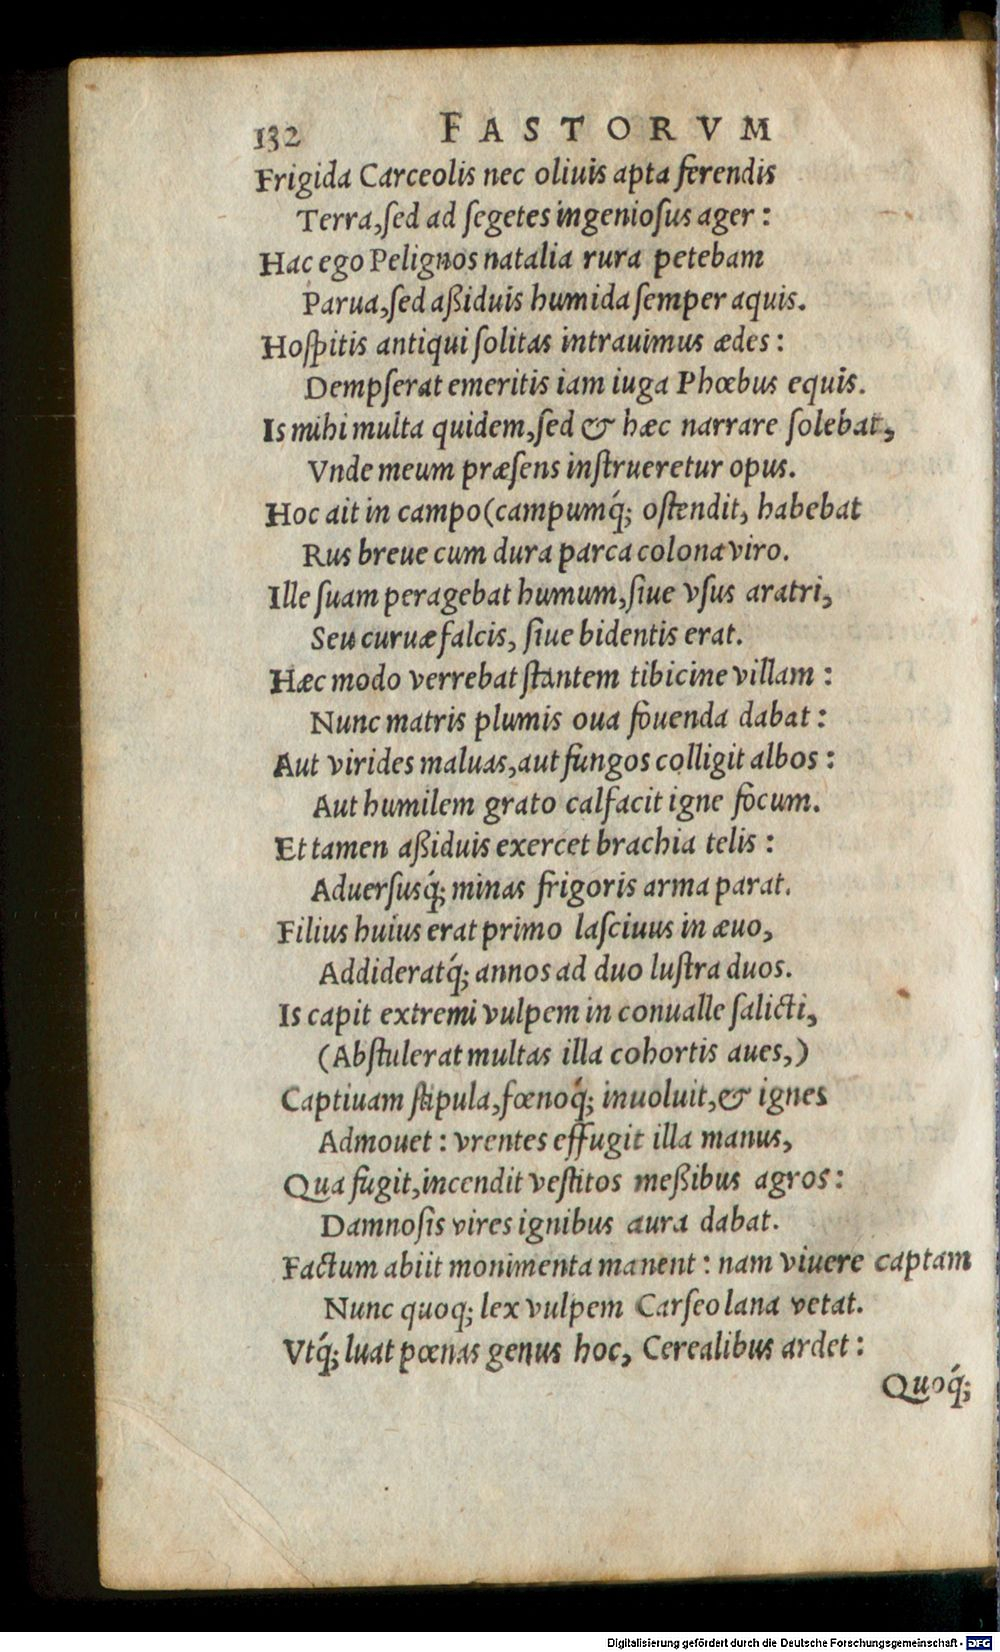 132 FASTORVM
Frigida Carceolis nec oliuis apta ferendis
Terra,ſed ad ſegetes ingenioſus ager :
Hac ego Pelignos natalia rura petebam
Parua,ſed aßiduis humida ſemper aquis.
Hoſpitis antiqui ſolitas intrauimus ædes :
Dempſerat emeritis iam iuga Phœbus equis.
Is mihi multa quidem,ſed & hæc narrare ſolebat,
Vnde meum præſens inſtrueretur opus.
Hoc ait in campo(campumq́; oſtendit, habebat
Rus breue cum dura parca colona viro.
Ille ſuam peragebat humum,ſiue vſus aratri,
Seu curuæ falcis, ſiue bidentis erat.
Hæc modo verrebat ſtantem tibicine villam :
Nunc matris plumis oua fouenda dabat :
Aut virides maluas,aut fungos colligit albos :
Aut humilem grato calfacit igne focum.
Et tamen aßiduis exercet brachia telis :
Aduerſusq́; minas frigoris arma parat.
Filius huius erat primo laſciuus in æuo,
Addideratq́; annos ad duo luſtra duos.
Is capit extremi vulpem in conualle ſalicti,
(Abſtulerat multas illa cohortis aues,)
Captiuam ſtipula,fœnoq́; inuoluit,& ignes
Admouet : vrentes effugit illa manus,
Qua fugit,incendit veſtitos meßibus agros :
Damnoſis vires ignibus aura dabat.
Factum abiit monimenta manent : nam viuere captam
Nunc quoq; lex vulpem Carſeolana vetat.
Vtq́; luat pœnas genus hoc, Cerealibus ardet :
Quoq́;
Digitalisierung gefördert durch die Deutsche Forschungsgemeinschaft - DFG